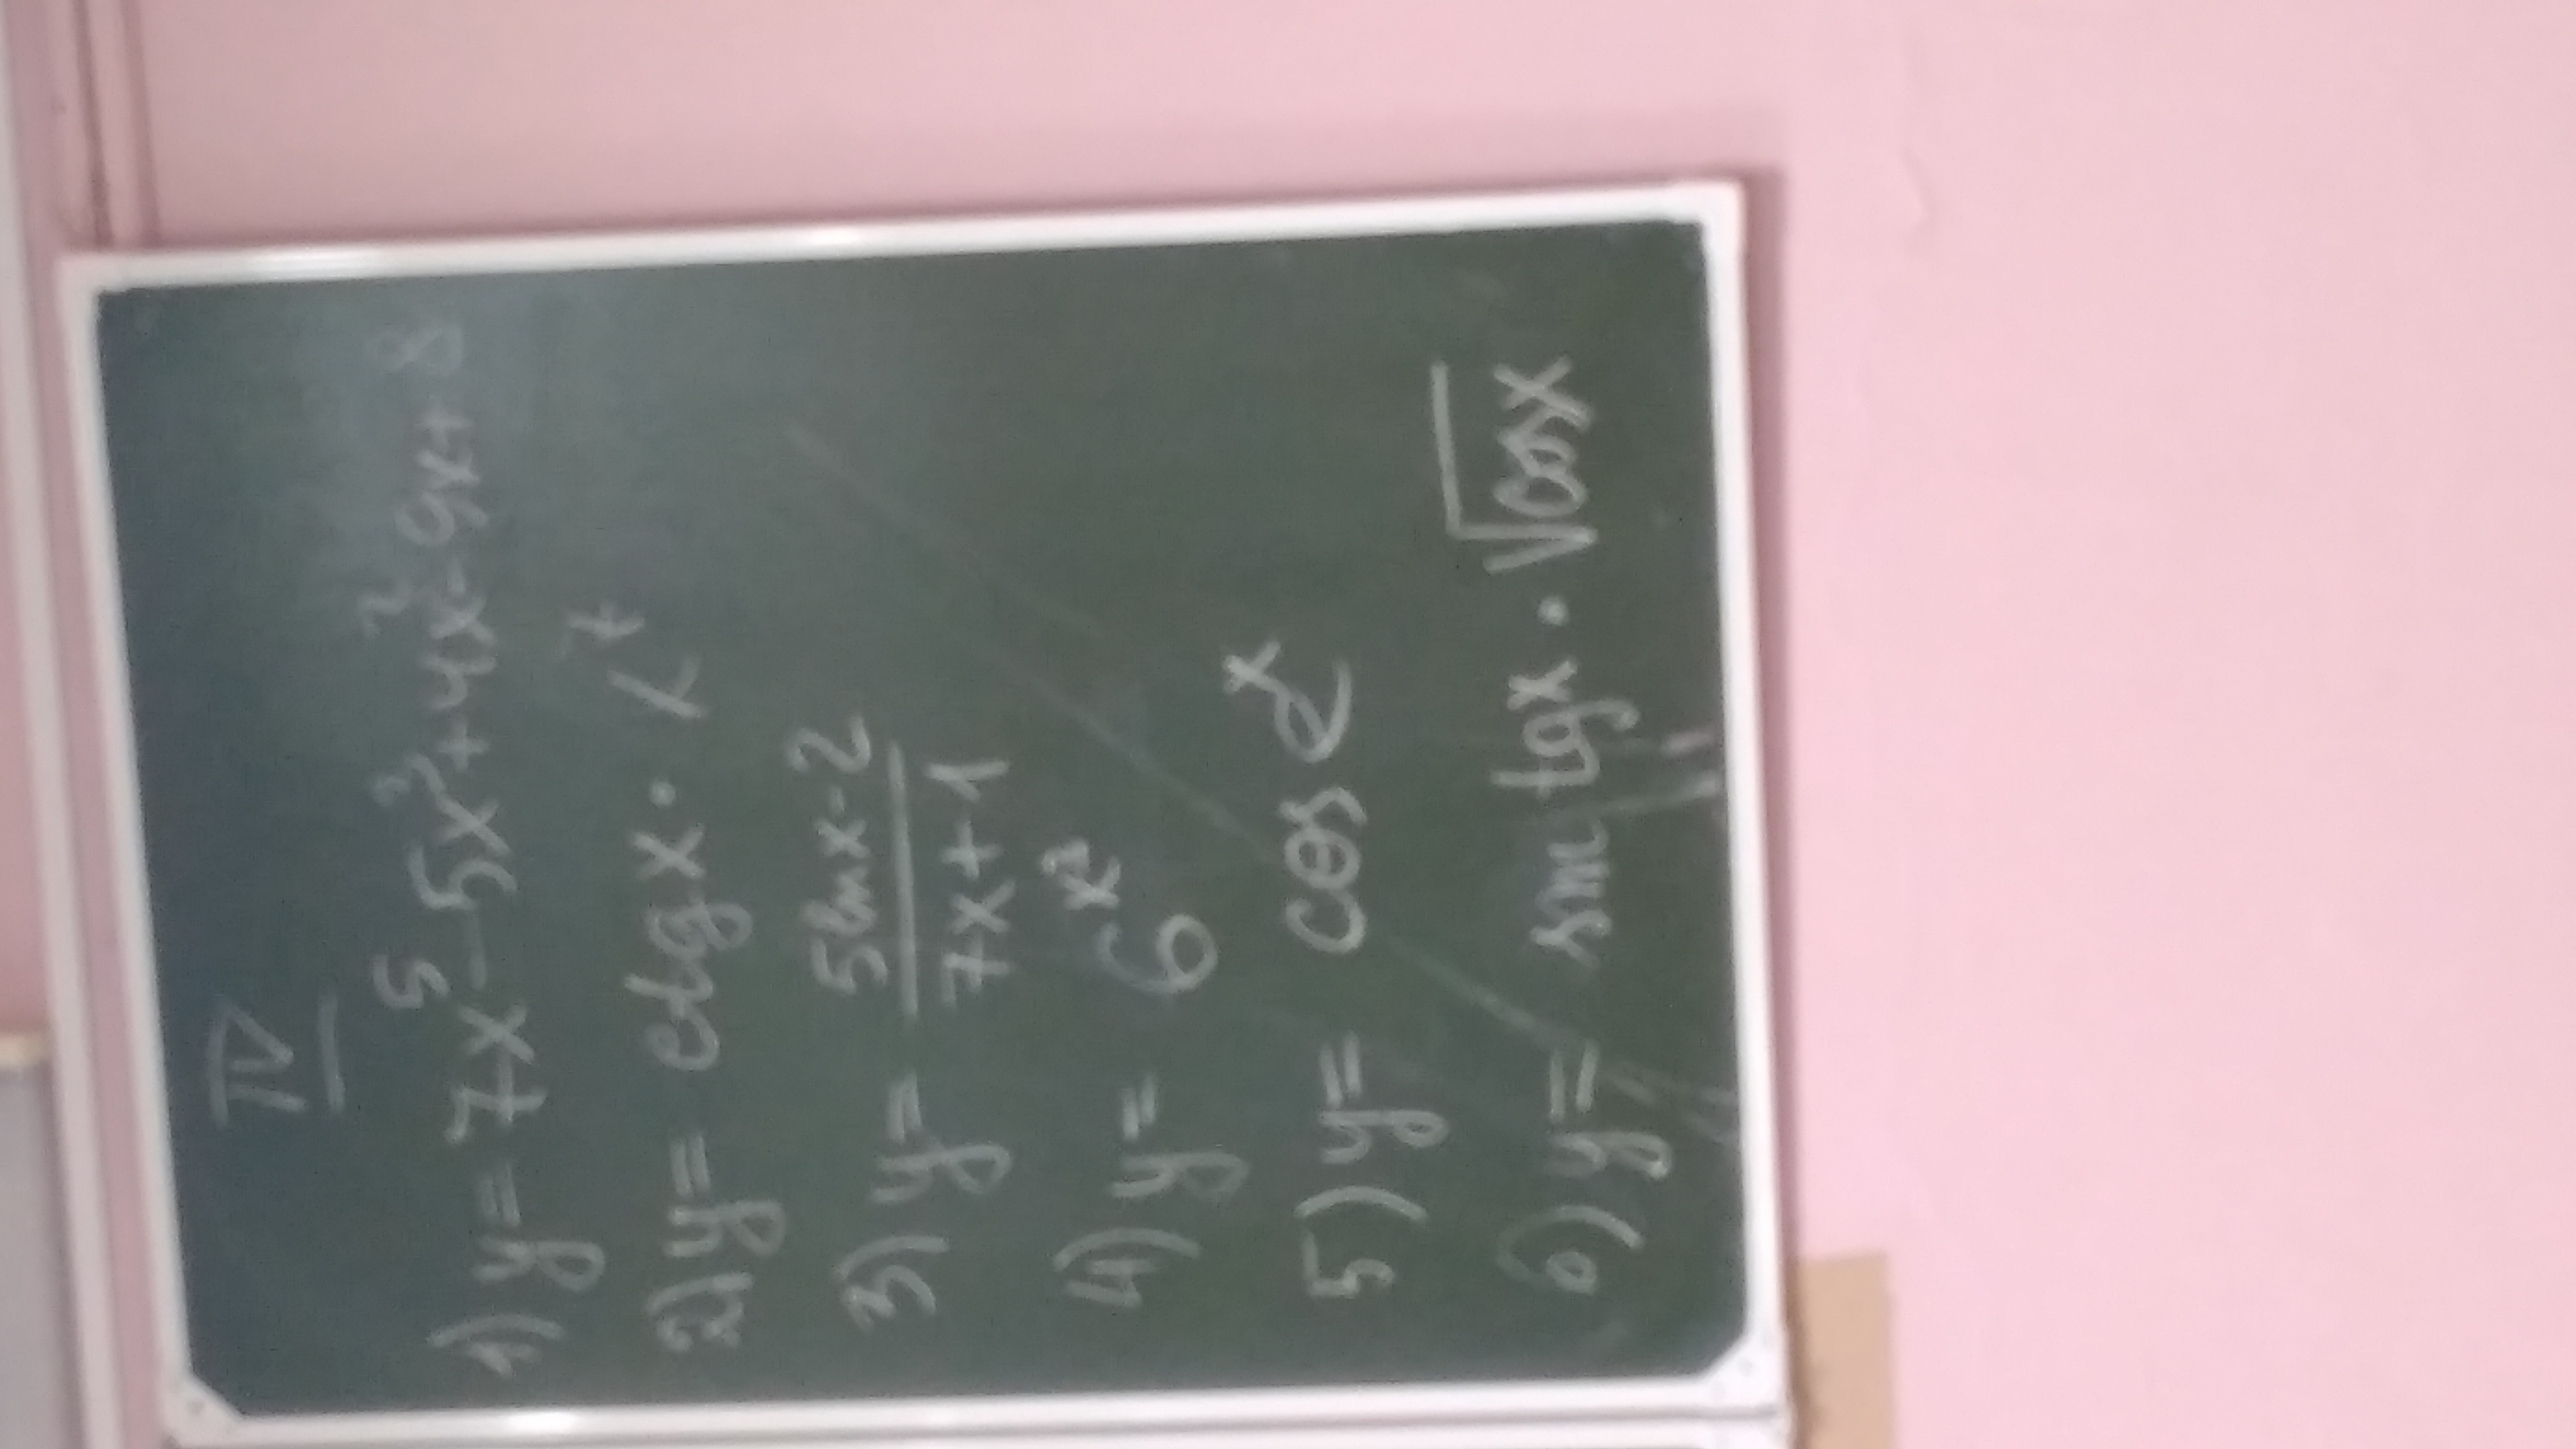 IV
1) y = 7x⁵ - 5x³ + 4x² - 9x + 8
2) y = ctg x · x⁷
3) y = (5lnx - 2)/(7x + 1)
4) y = 6^(x²)
5) y = cos eˣ
6) y = sin tgx · √cosx